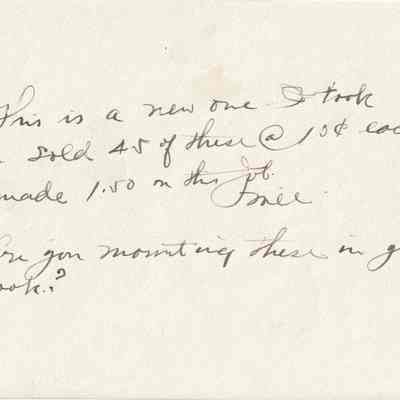 This is a new one I took
sold 45 of these @ 10¢ eac
made 1.50 on this job.
Are you mounting these in y
ook?